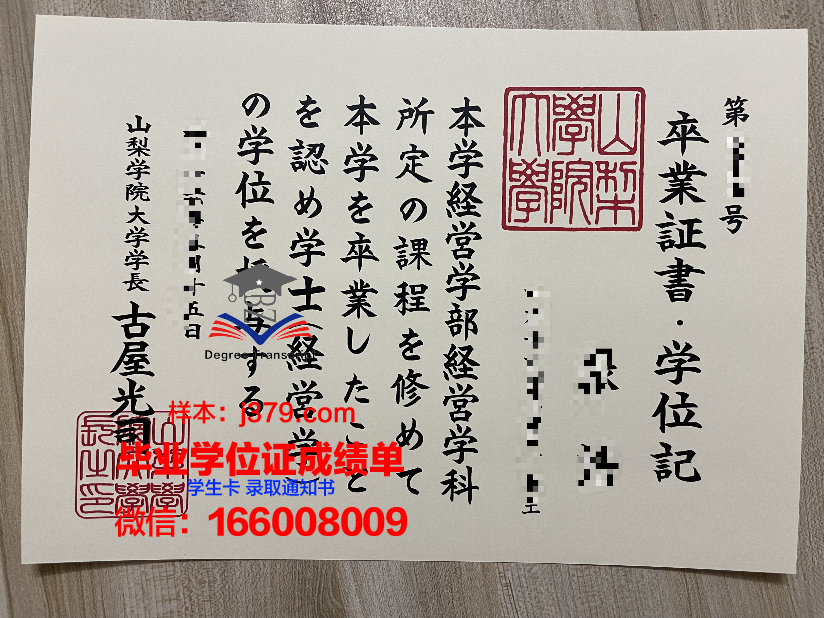 第 号
卒業証書・学位記
山梨
學院
大學
本学経営学部経営学科
所定の課程を修めて
本学を卒業したこと
を認め学士(経営学)
の学位を授与する
月十五日
山梨学院大学学長 古屋光司
Degree Transcript
样本：j879.com
毕业学位证成绩单
学生卡 录取通知书
微信：166008009